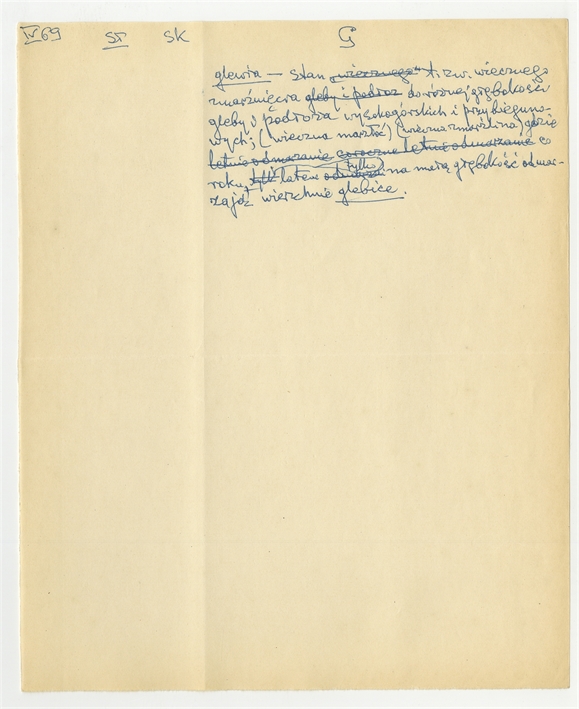 IV69 ST SK G
glewia — stan „wiecznego" t.zw. wiecznego
zmarźnięcia gleby i podroża do różnej głębokości
gleby i podroża wysokogórskich i przybieguno-
wych; (wieczna marzłoć) (wieczna zmarzlina) gdzie
letnie odmarzanie coroczne letnie odmarzanie co
roku, tylko latem na małą głębokość odmar-
zają wierzchnie glebice.